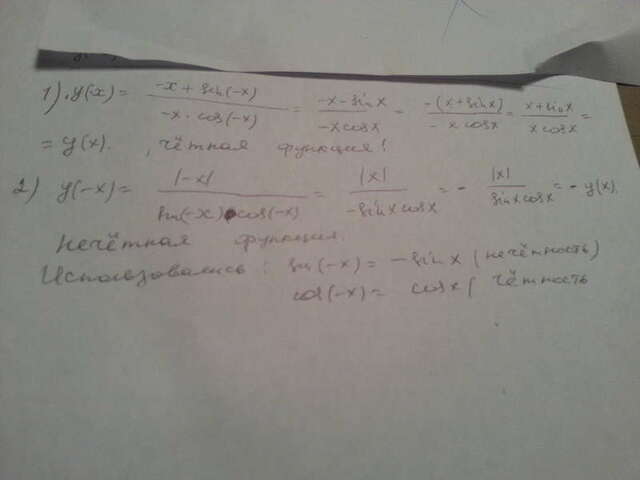 1) y(x) = (-x + sin(-x))/(-x · cos(-x)) = (-x - sin x)/(-x cos x) = (-(x + sin x))/(-x cos x) = (x + sin x)/(x cos x) =
= y(x). , чётная функция!
2) y(-x) = |-x|/(sin(-x) cos(-x)) = |x|/(-sin x cos x) = - |x|/(sin x cos x) = - y(x).
Нечётная функция.
Использовались: sin(-x) = - sin x (нечётность)
cos(-x) = cos x ( чётность